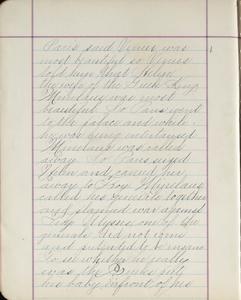 Paris said Venus was
most beautiful so Venus
told him that Helen
the wife of the Greek King
Minelaus was most
beautiful. So Paris went
to the palace and while
he was being entertained
Minelaus was called
away. So Paris seized
Helen and carried her
away to Troy. Minelaus
called his generals together
and planned war against
Troy. Ulysses one of the
generals did not come
and pretended to be insane
To see whether he really
was the Greeks put
his baby infront of his